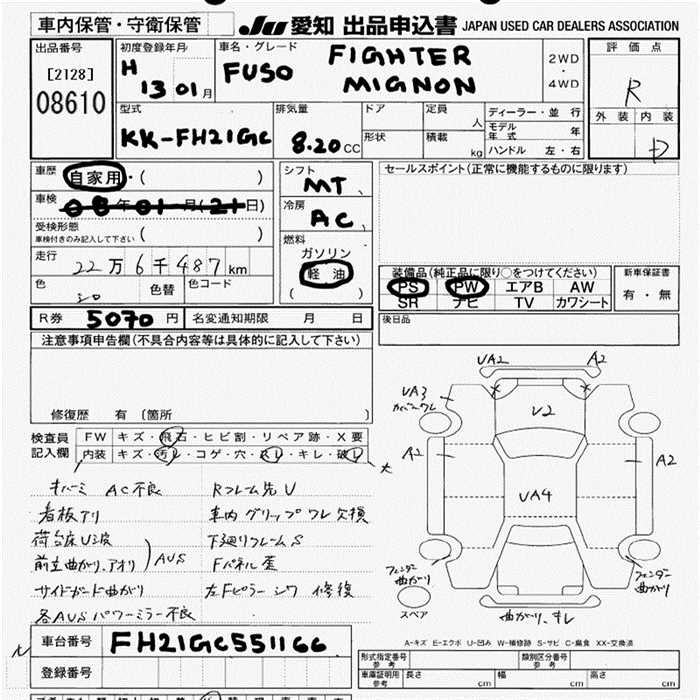 車内保管・守衛保管 JU 愛知 出品申込書 JAPAN USED CAR DEALERS ASSOCIATION
出品番号 [2128] 08610
初度登録年月 H 13 01月
車名・グレード FUSO FIGHTER MIGNON
2WD・4WD
評価点 R
外装 内装 D
型式 KK-FH21GC
排気量 8.20 CC
ドア 形状
定員 人
積載 kg
ディーラー・並行
モデル年式 年
ハンドル 左・右
車歴 自家用・( )
車検 08年01月(21日)
受検形態 車検付きのみ記入して下さい ( )
走行 22万6千487km
色 シロ 色替 色コード
シフト MT
冷房 AC
燃料 ガソリン 軽油 ( )
セールスポイント(正常に機能するものに限ります)
装備品(純正品に限り○をつけてください)
PS PW エアB AW
SR ナビ TV カワシート
新車保証書 有・無
R券 5070円 名変通知期限 月 日
後日品
注意事項申告欄(不具合内容等は具体的に記入して下さい)
修復歴 有 〔箇所 〕
検査員記入欄
FW キズ・飛石・ヒビ割・リペア跡・X要
内装 キズ・汚レ・コゲ・穴・スレ・キレ・破レ
オバーミ AC不良
看板アリ
荷台床U波
前立曲がり、アオリ
AUS
サイドガード曲がり
各AUS パワーミラー不良
Rフレーム先U
車内グリップワレ欠損
下廻りフレームS
Fパネル歪
左Fピラーシワ 修復
UA2 A2
UA3 カバーワレ
U2
A2 A2
UA4
フェンダー曲がり
フェンダー曲がり
スペア
曲がり、キレ
A-キズ E-エクボ U-凹み W-補修跡 S-サビ C-腐食 XX-交換済
車台番号 FH21GC551166
登録番号
形式指定番号 参考
類別区分番号 参考
車庫証明用 参考 長さ cm 幅 cm 高さ cm